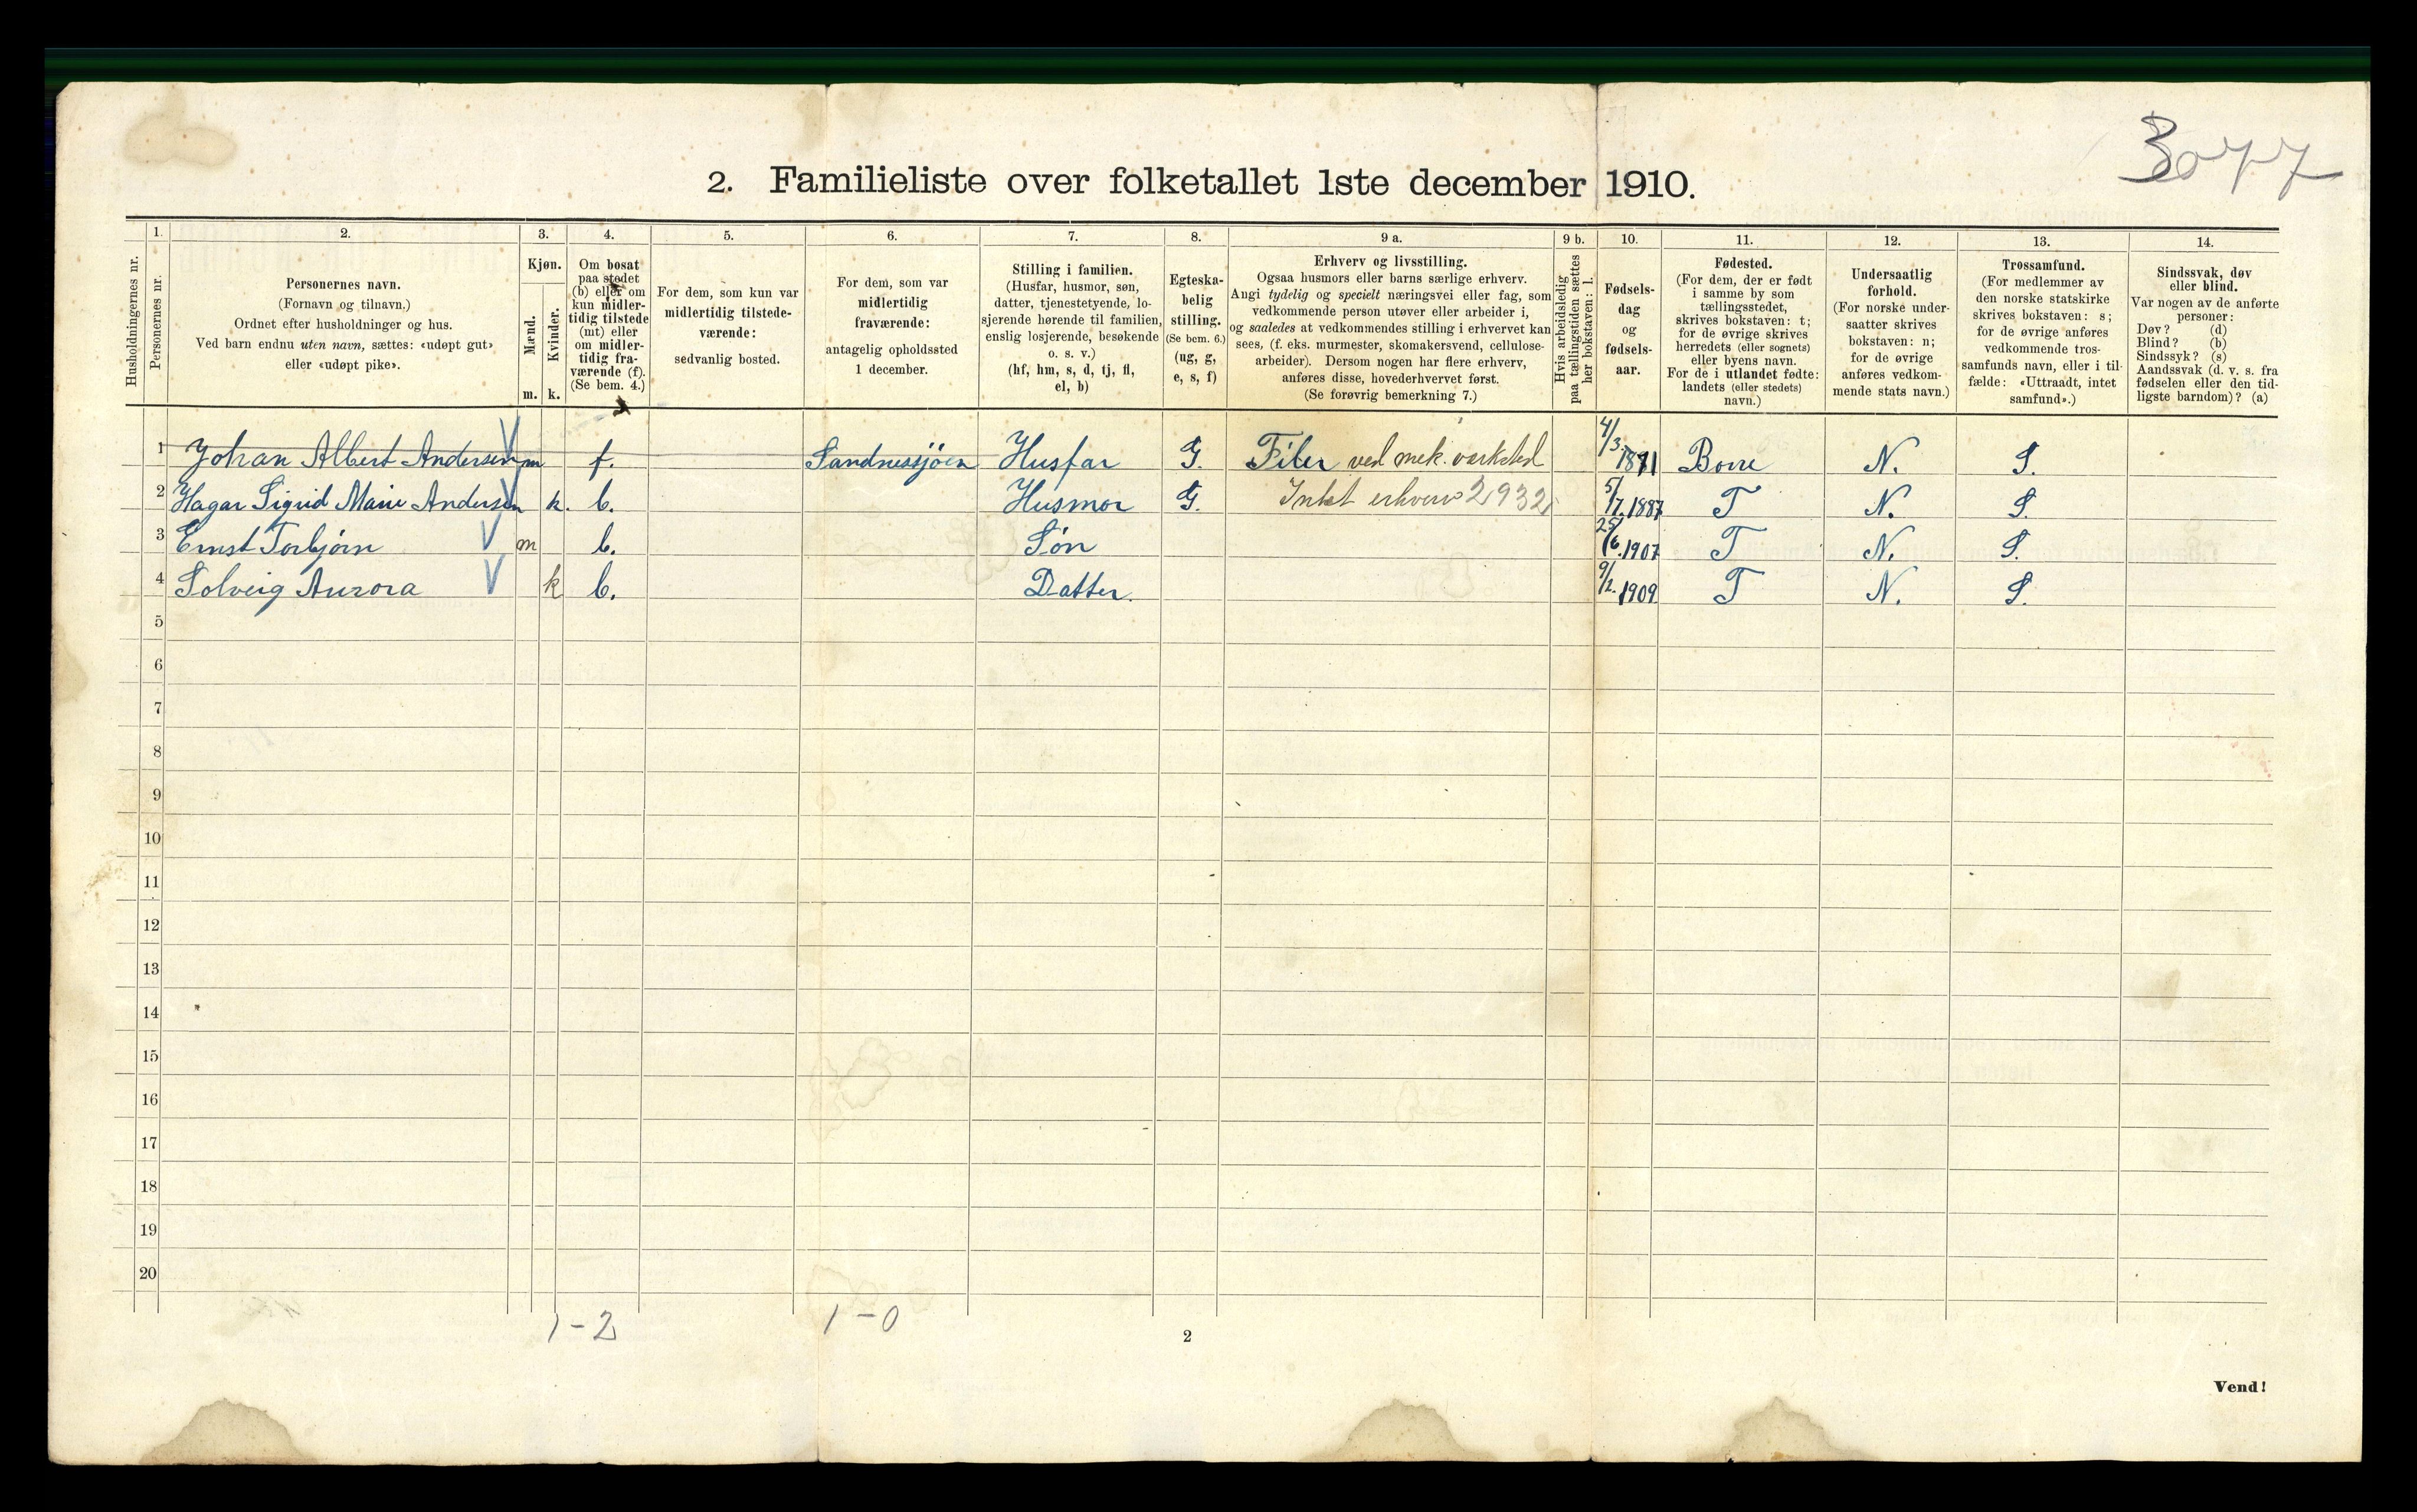 3077
2. Familieliste over folketallet 1ste december 1910.
Husholdningernes nr.
1.
Personernes nr.
2.
Personernes navn.
(Fornavn og tilnavn.)
Ordnet efter husholdninger og hus.
Ved barn endnu uten navn, sættes: «udøpt gut»
eller «udøpt pike».
3.
Kjøn.
Mænd.
Kvinder.
m. k.
4.
Om bosat
paa stedet
(b) eller om
kun midler-
tidig tilstede
(mt) eller
om midler-
tidig fra-
værende (f).
(Se bem. 4.)
5.
For dem, som kun var
midlertidig tilstede-
værende:
sedvanlig bosted.
6.
For dem, som var
midlertidig
fraværende:
antagelig opholdssted
1 december.
7.
Stilling i familien.
(Husfar, husmor, søn,
datter, tjenestetyende, lo-
sjerende hørende til familien,
enslig losjerende, besøkende
o. s. v.)
(hf, hm, s, d, tj, fl,
el, b)
8.
Egteska-
belig
stilling.
(Se bem. 6.)
(ug, g,
e, s, f)
9 a.
Erhverv og livsstilling.
Ogsaa husmors eller barns særlige erhverv.
Angi tydelig og specielt næringsvei eller fag, som
vedkommende person utøver eller arbeider i,
og saaledes at vedkommendes stilling i erhvervet kan
sees, (f. eks. murmester, skomakersvend, cellulose-
arbeider). Dersom nogen har flere erhverv,
anføres disse, hovederhvervet først.
(Se forøvrig bemerkning 7.)
9 b.
Hvis arbeidsledig
paa tællingstiden sættes
her bokstaven: l.
10.
Fødsels-
dag
og
fødsels-
aar.
11.
Fødested.
(For dem, der er født
i samme by som
tællingsstedet,
skrives bokstaven: t;
for de øvrige skrives
herredets (eller sognets)
eller byens navn.
For de i utlandet fødte:
landets (eller stedets)
navn.)
12.
Undersaatlig
forhold.
(For norske under-
saatter skrives
bokstaven: n;
for de øvrige
anføres vedkom-
mende stats navn.)
13.
Trossamfund.
(For medlemmer av
den norske statskirke
skrives bokstaven: s;
for de øvrige anføres
vedkommende tros-
samfunds navn, eller i til-
fælde: «Uttraadt, intet
samfund».)
14.
Sindssvak, døv
eller blind.
Var nogen av de anførte
personer:
Døv? (d)
Blind? (b)
Sindssyk? (s)
Aandssvak (d. v. s. fra
fødselen eller den tid-
ligste barndom)? (a)
1 Johan Albert Andersen m f. Sandnessjøen Husfar G. Filer ved mek. værksted 4/3 1881 Borre N. S.
2 Hagar Sigrid Marie Andersen k. b. Husmor G. Intet erhverv 2932 5/7. 1887 T N. S.
3 Ernst Torbjørn m b. Søn 25/6. 1907 T N. S.
4 Solveig Aurora k b. Datter. 9/2. 1909 T N. S.
5
6
7
8
9
10
11
12
13
14
15
16
17
18
19
20
1-2 1-0
2
Vend!